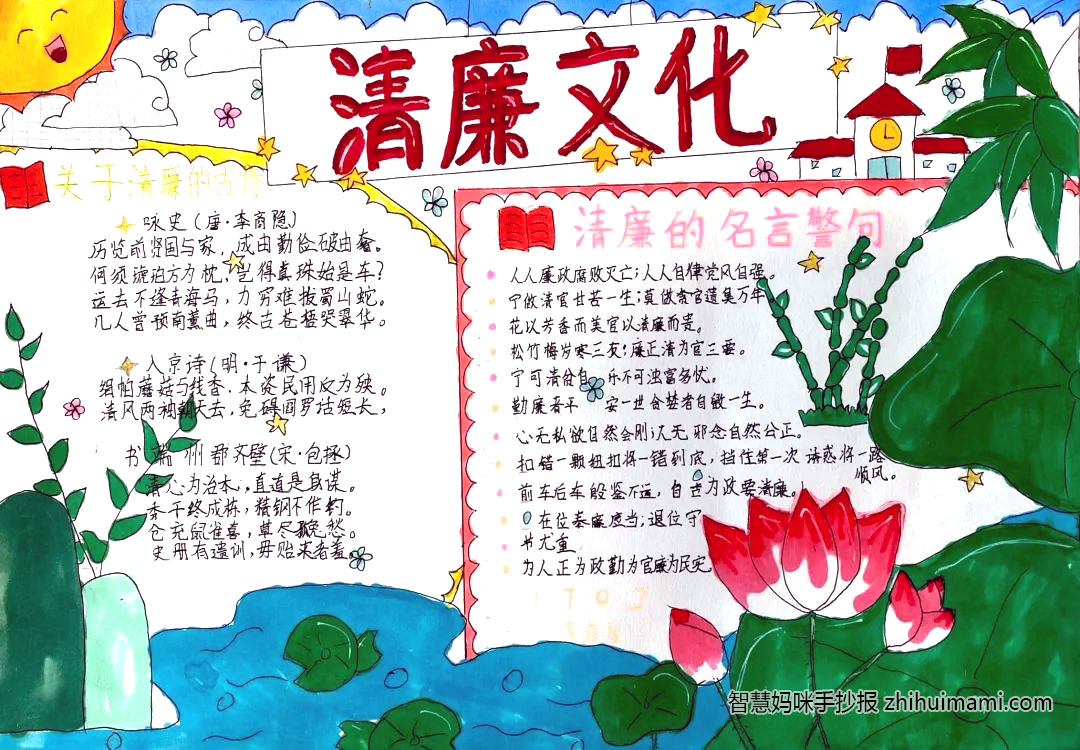 清廉文化
关于清廉的古诗
咏史(唐·李商隐)
历览前贤国与家,成由勤俭破由奢。
何须琥珀方为枕,岂得真珠始是车?
运去不逢青海马,力穷难拔蜀山蛇。
几人曾预南薰曲,终古苍梧哭翠华。
入京诗(明·于谦)
绢帕蘑菇与线香,本资民用反为殃。
清风两袖朝天去,免得阎罗话短长,
书端州郡齐壁(宋·包拯)
清心为治本,直道是身谋。
秀干终成栋,精钢不作钩。
仓充鼠雀喜,草尽兔愁。
史册有遗训,毋贻来者羞。
清廉的名言警句
人人廉政腐败灭亡;人人自律党风自强。
宁做清官甘苦一生;莫做贪官遗臭万年
花以芳香而美官以清廉而贵。
松竹梅岁寒三友;廉正清为官三要。
宁可清贫自 乐不可浊富多忧。
勤廉者平 安一世贪婪者自毁一生。
心无私欲自然会刚人无邪念自然公正。
扣错一颗纽扣将一错到底,挡住第一次诱惑将一路
顺风。
前车后车殷鉴不远,自 力政要清廉。
在位奉廉应当;退位守
书尤重
为人正为政勤为官廉为民实
1702
智慧妈咪手抄报 zhihuimami.com